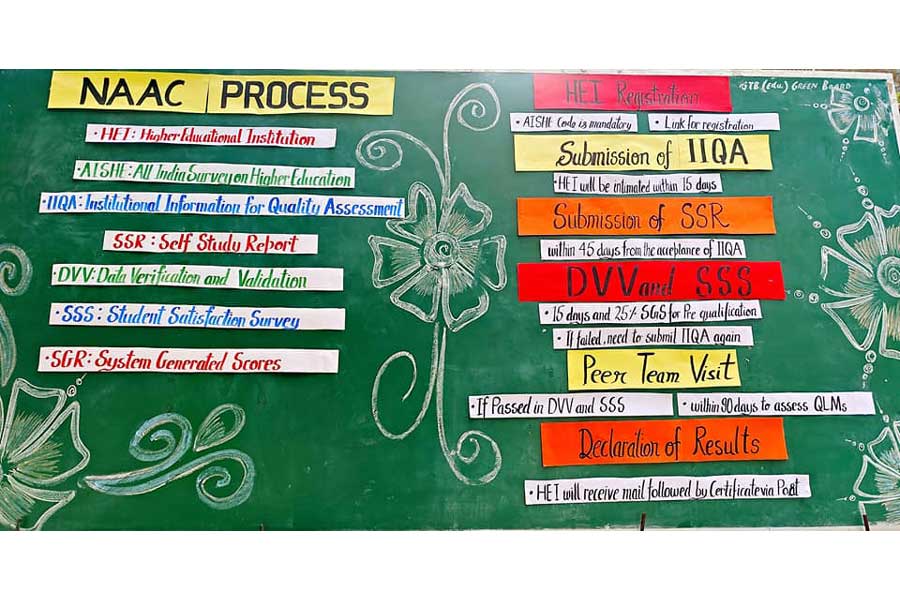 NAAC PROCESS
• HEI: Higher Educational Institution
• AISHE: All India Survey on Higher Education
• IIQA: Institutional Information for Quality Assessment
SSR: Self Study Report
• DVV: Data Verification and Validation
• SSS: Student Satisfaction Survey
• SGR: System Generated Scores
(Edu) GREEN BOARD
HEI Registration
• AISHE Code is mandatory • Link for registration
Submission of IIQA
• HEI will be intimated within 15 days
Submission of SSR
within 45 days from the acceptance of IIQA
DVV and SSS
• 15 days and 25% SGS for Pre qualification
• If failed, need to submit IIQA again
Peer Team Visit
• If Passed in DVV and SSS • within 90 days to assess QLMs
Declaration of Results
• HEI will receive mail followed by Certificate via Post